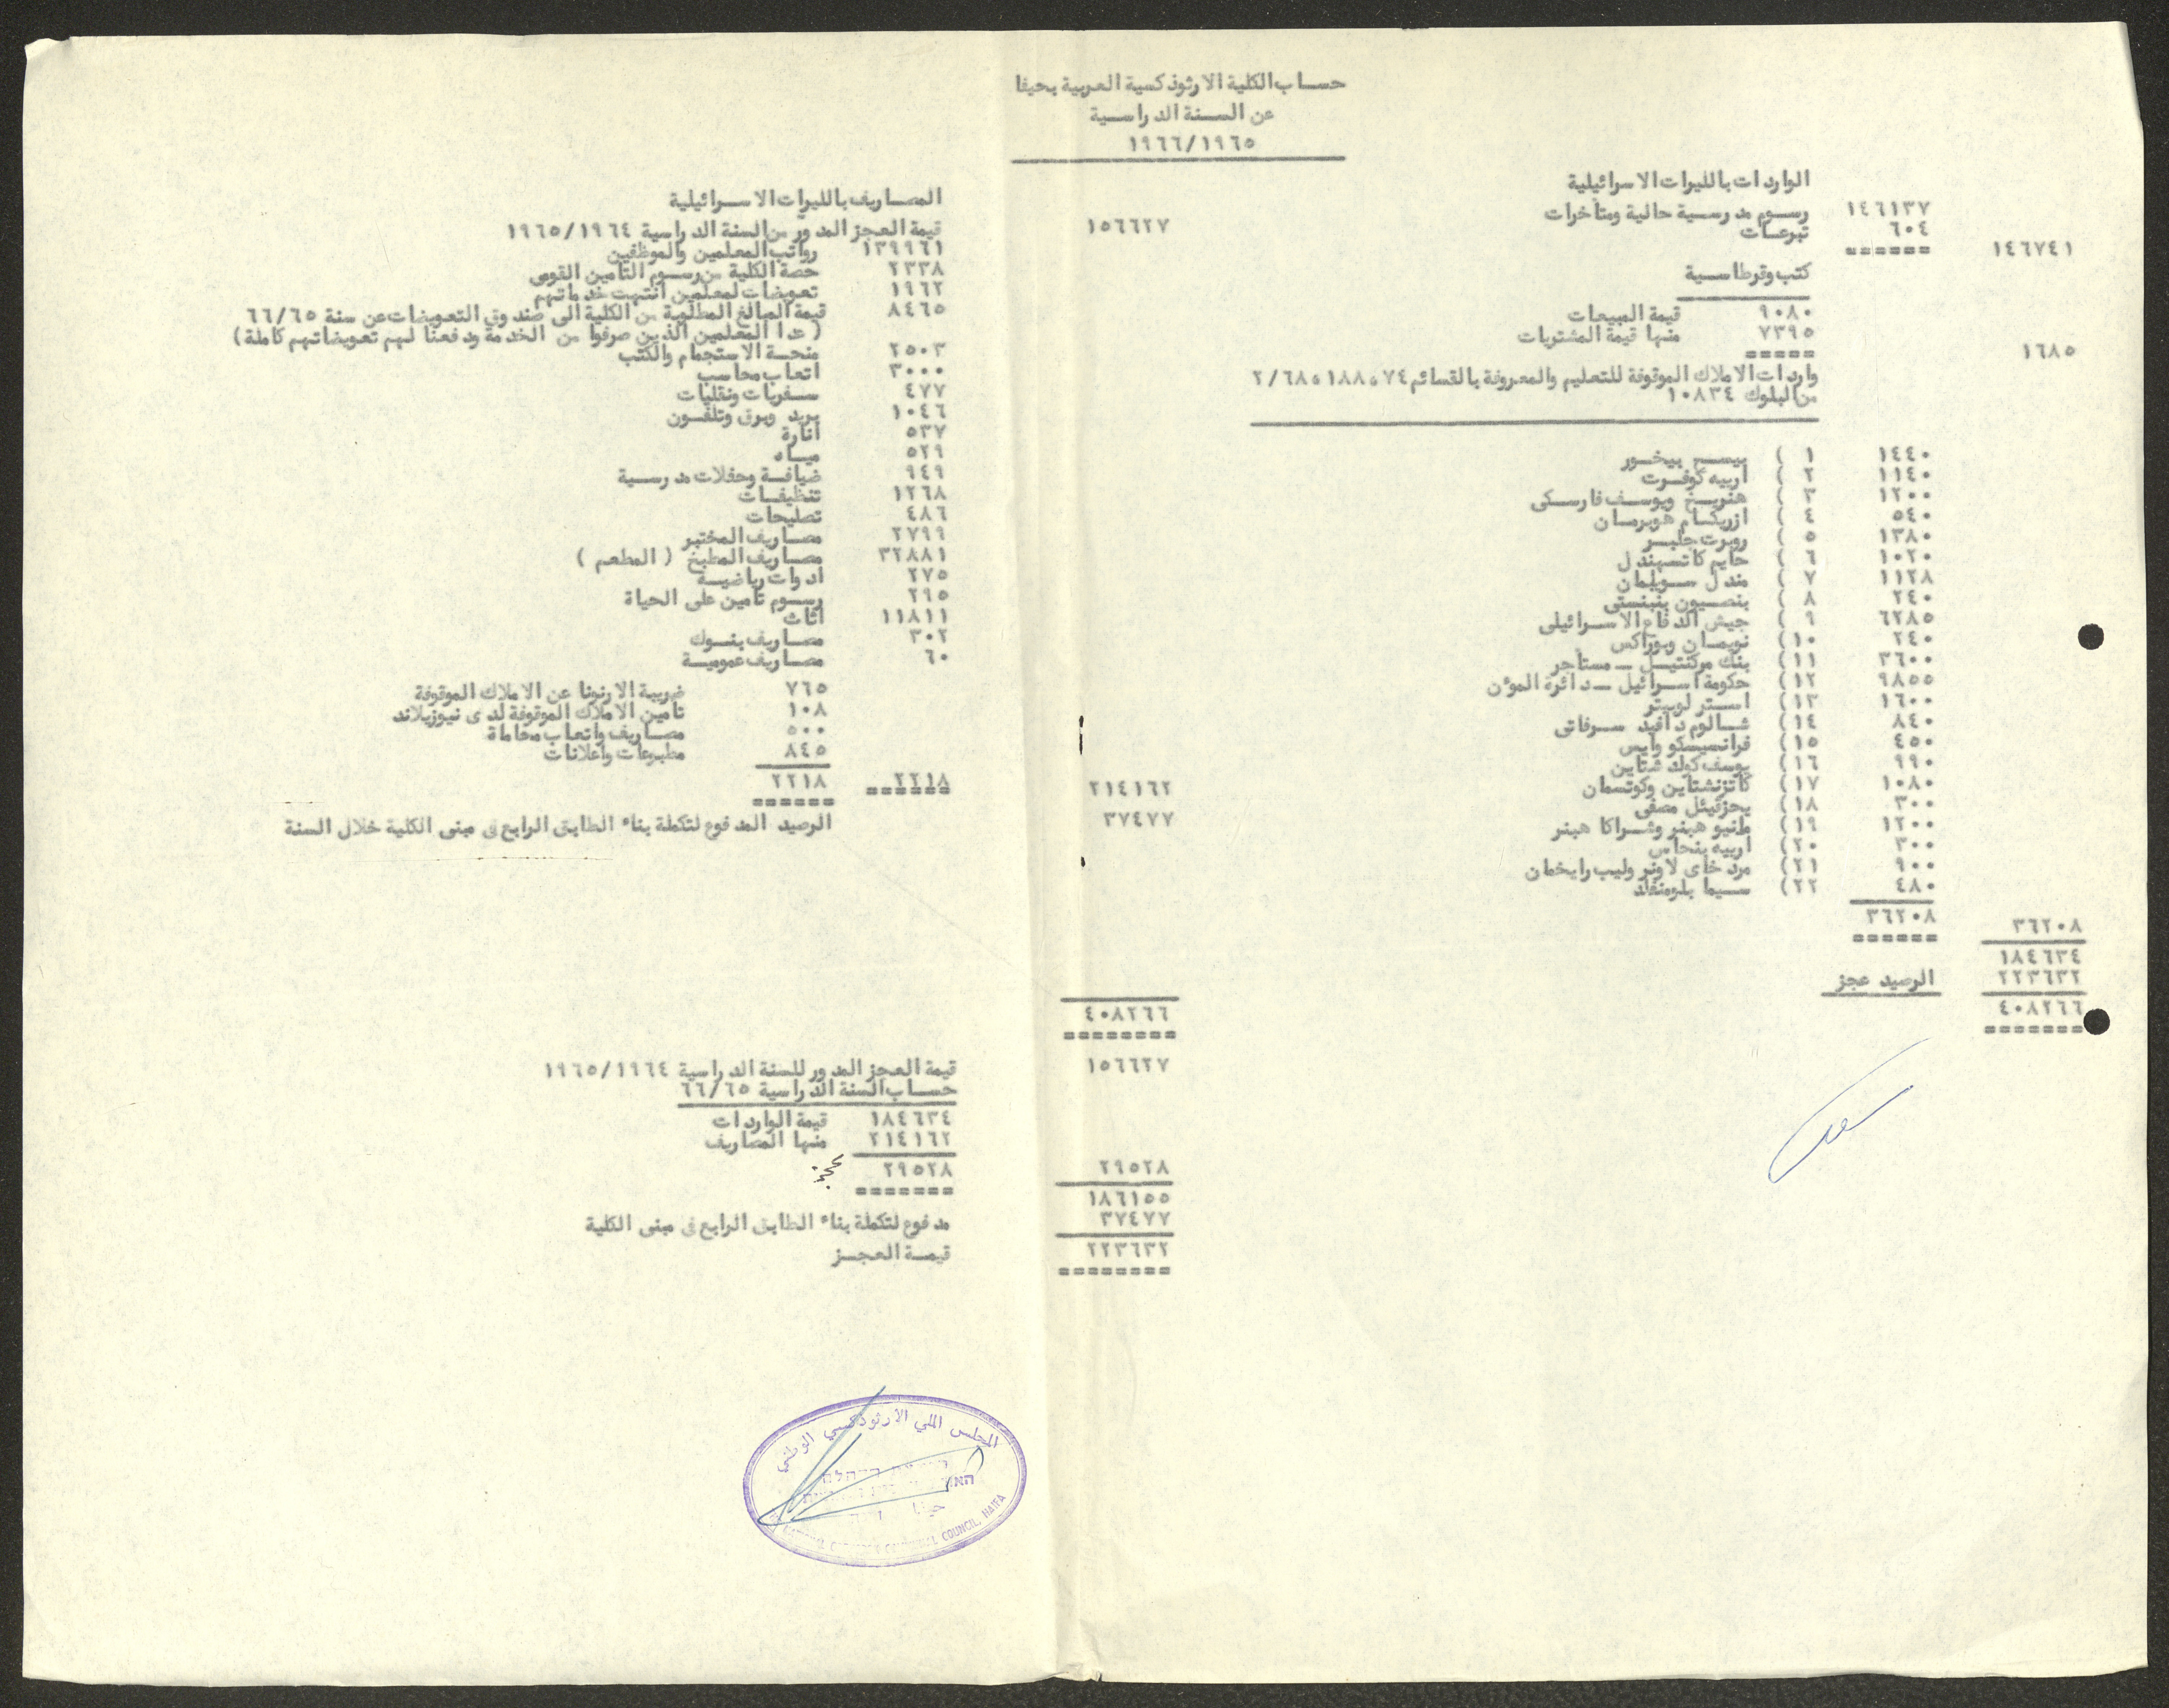 حساب الكلية الارثوذكسية العربية بحيفا
عن السنة الدراسية
١٩٦٦/١٩٦٥
الواردات بالليرات الاسرائيلية
١٤٦١٣٧ رسوم مدرسية حالية ومتأخرات
٦٠٤ تبرعات
١٤٦٧٤١ ======
كتب وقرطاسية
٩٠٨٠ قيمة المبيعات
٧٣٩٥ منها قيمة المشتريات
١٦٨٥ =====
واردات الاملاك الموقوفة للتعليم والمعروفة بالقسائم ٧٤ ٥ ١٨٨ ٥ ٢/٦٨٥
من البلوك ١٠٨٣٤
١٤٤٠ ١ ) بيسح بيخور
١١٤٠ ٢ ) اربيه كوفرت
١٢٠٠ ٣ ) هنريخ ويوسف فارسكى
٥٤٠ ٤ ) ازريكام هوبرمان
١٣٨٠ ٥ ) روبرت جلبر
١٠٢٠ ٦ ) حايم كاتسهندل
١١٢٨ ٧ ) مندل سويلمان
٢٤٠ ٨ ) بنصيون بنبنستى
٦٢٨٥ ٩ ) جيش الدفاع الاسرائيلى
٢٤٠ ١٠) نويمان وبوراكس
٣٦٠٠ ١١) بنك مركنتيل ــ مستأجر
٩٨٥٥ ١٢) حكومة اسرائيل ــ دائرة المؤن
١٦٠٠ ١٣) استر لوبيتر
٨٤٠ ١٤) شالوم دافيد سرفاتى
٤٥٠ ١٥) فرانسيسكو وايس
٩٩٠ ١٦) يوسف كوك شتاين
١٠٨٠ ١٧) كاتزنشتاين وكوتسمان
٣٠٠ ١٨) يحزقيئل مصفى
١٢٠٠ ١٩) مانيو هبنر وشراكا هبنر
٣٠٠ ٢٠) اربيه بنحاس
٩٠٠ ٢١) مردخاى لاونر وليب رايخمان
٤٨٠ ٢٢) سيما بلومنفلد
٣٦٢٠٨ ٣٦٢٠٨
======
١٨٤٦٣٤
٢٢٣٦٣٢ الرصيد عجز
٤٠٨٢٦٦
=======
المصاريف بالليرات الاسرائيلية
١٥٦٦٢٧ قيمة العجز المدور من السنة الدراسية ١٩٦٥/١٩٦٤
١٣٩٩٦١ رواتب المعلمين والموظفين
٢٣٣٨ حصة الكلية من رسوم التأمين القومى
١٩٦٢ تعويضات لمعلمين انتهت خدماتهم
٨٤٦٥ قيمة المبالغ المطلوبة من الكلية الى صندوق التعويضات عن سنة ٦٦/٦٥
( عدا المعلمين الذين صرفوا من الخدمة ودفعنا لهم تعويضاتهم كاملة)
٢٥٠٣ منحة الاستجمام والكتب
٣٠٠٠ اتعاب محاسب
٤٧٧ سفريات ونقليات
١٠٤٦ بريد وبرق وتلفون
٥٣٧ انارة
٥٢٩ مياه
٩٤٩ ضيافة وحفلات مدرسية
١٢٦٨ تنظيفات
٤٨٦ تصليحات
٢٧٩٩ مصاريف المختبر
٣٢٨٨١ مصاريف المطبخ ( المطعم )
٢٧٥ ادوات رياضية
٢٩٥ رسوم تأمين على الحياة
١١٨١١ اثاث
٣٠٢ مصاريف بنوك
٦٠ مصاريف عمومية
٧٦٥ ضريبة الارنونا عن الاملاك الموقوفة
١٠٨ تأمين الاملاك الموقوفة لدى نيوزيلاند
٥٠٠ مصاريف واتعاب محاماة
٨٤٥ مطبوعات واعلانات
٢١٤١٦٢ ٢٢١٨ ٢٢١٨
====== ======
٣٧٤٧٧ الرصيد المدفوع لتكملة بناء الطابق الرابع فى مبنى الكلية خلال السنة
٤٠٨٢٦٦
========
١٥٦٦٢٧ قيمة العجز المدور للسنة الدراسية ١٩٦٥/١٩٦٤
حساب السنة الدراسية ٦٦/٦٥
١٨٤٦٣٤ قيمة الواردات
٢١٤١٦٢ منها المصاريف
٢٩٥٢٨ ٢٩٥٢٨ عجز
=======
١٨٦١٥٥
٣٧٤٧٧ مدفوع لتكملة بناء الطابق الرابع فى مبنى الكلية
٢٢٣٦٣٢ قيمة العجز
========
المجلس الملي الأرثوذكسي الوطني
حيفا
COUNCIL, HAIFA